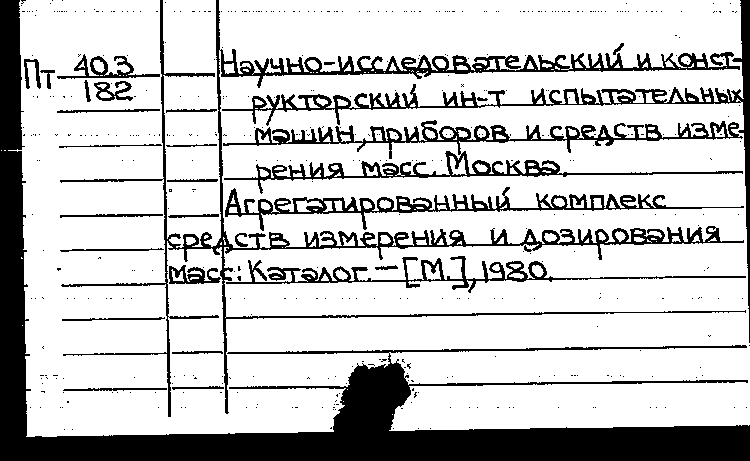 Пт 40.3 Научно-исследовательский и конст-
182 рукторский ин-т испытательных
машин, приборов и средств изме-
рения масс. Москва.
Агрегатированный комплекс
средств измерения и дозирования
масс: Каталог. — [М.], 1980.